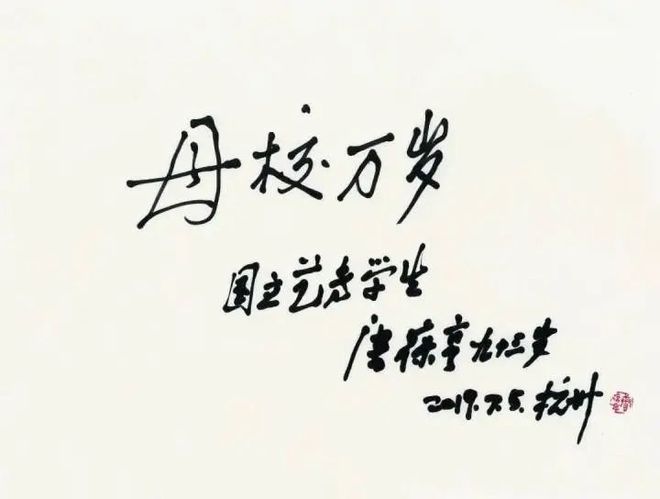 母校万岁
国立艺专学生
唐葆亨九十三岁
2019.7.5.杭州